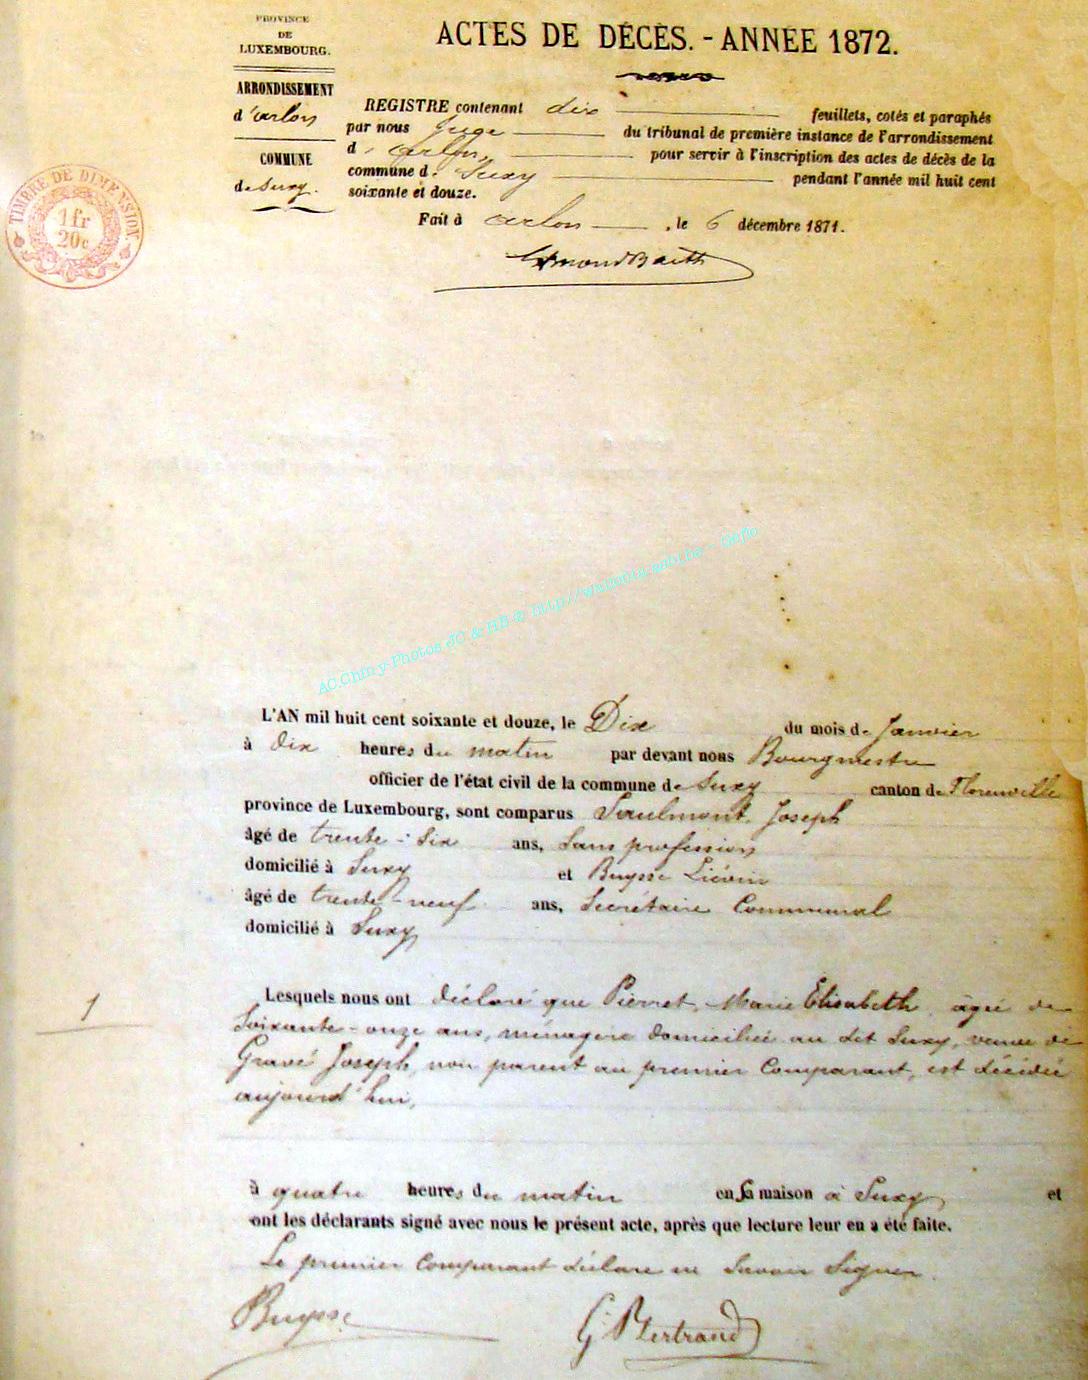 PROVINCE
DE
LUXEMBOURG.
ARRONDISSEMENT
d'arlon
COMMUNE
de Suxy.
TIMBRE DE DIMENSION
1 fr
20c
ACTES DE DÉCÈS. - ANNÉE 1872.
REGISTRE contenant dix feuillets, cotés et paraphés
par nous Juge du tribunal de première instance de l'arrondissement
d'arlon, pour servir à l'inscription des actes de décès de la
commune de Suxy pendant l'année mil huit cent
soixante et douze.
Fait à arlon, le 6 décembre 1871.
AC.Chiny-Photos JC & HB © http://wallonia-asbl.be - Géflo
L'AN mil huit cent soixante et douze, le Dix du mois de Janvier
à dix heures du matin par devant nous Bourgmestre
officier de l'état civil de la commune de Suxy canton de Florenville
province de Luxembourg, sont comparus Saulmont Joseph
âgé de trente-six ans, Sans profession
domicilié à Suxy et Buysse Liévin
âgé de trente-neuf ans, Secrétaire Communal
domicilié à Suxy
1
Lesquels nous ont déclaré que Pierret, Marie Elisabeth, âgée de
Soixante-onze ans, ménagère domiciliée au dit Suxy, veuve de
Gravé Joseph, non parent au premier Comparant, est décédée
aujourd'hui,
à quatre heures du matin en sa maison à Suxy et
ont les déclarants signé avec nous le présent acte, après que lecture leur en a été faite.
Le premier Comparant déclare ne Savoir Signer.
Buysse
G. Bertrand